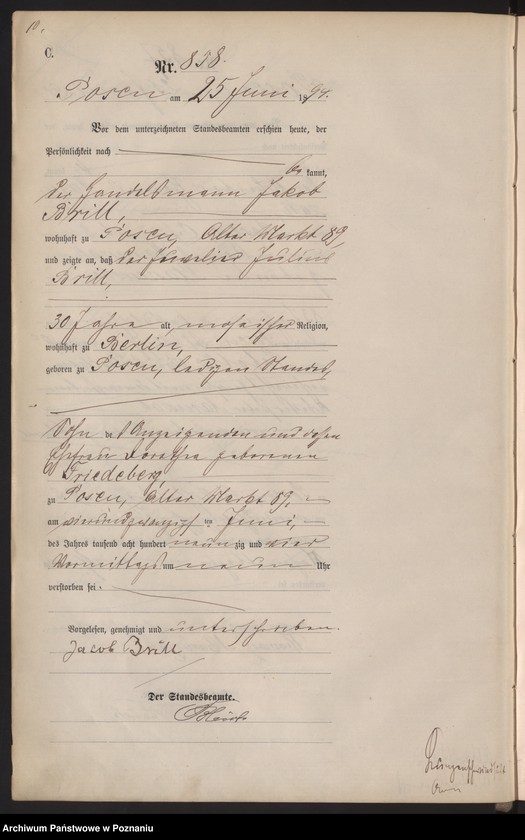 10.
C.
Nr. 858.
Posen am 25 Juni 1894.
Vor dem unterzeichneten Standesbeamten erschien heute, der
Persönlichkeit nach
be kannt,
der Handelsmann Jakob
Brill,
wohnhaft zu Posen, Alter Markt 89,
und zeigte an, daß der Juwelier Julius
Brill,
30 Jahre alt, mosaischer Religion,
wohnhaft zu Berlin,
geboren zu Posen, ledigen Standes,
Sohn des Anzeigenden und dessen
Ehefrau Dorothea geborenen
Friedeberg,
zu Posen, Alter Markt 89,
am vierundzwanzigsten Juni,
des Jahres tausend acht hundert neunzig und vier
Vormittags um neun Uhr
verstorben sei.
Vorgelesen, genehmigt und unterschrieben.
Jacob Brill
Der Standesbeamte.
Lungenschwindsucht
Archiwum Państwowe w Poznaniu